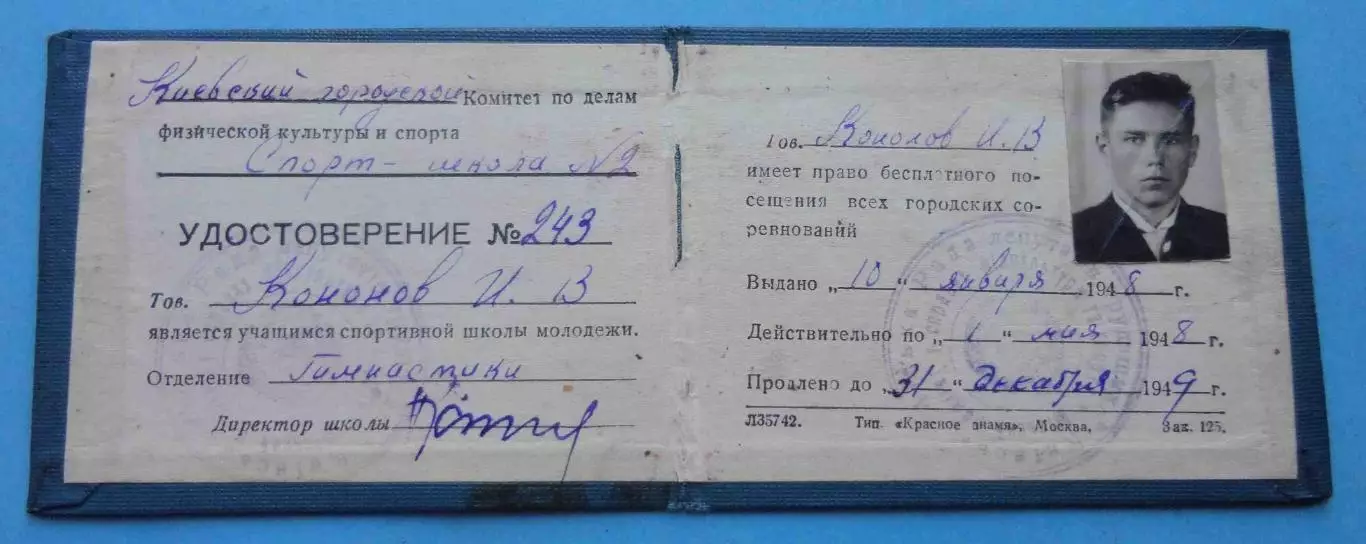 Киевский городской Комитет по делам
физической культуры и спорта
Спорт-школа №2
УДОСТОВЕРЕНИЕ № 243
Тов. Кононов И. В
является учащимся спортивной школы молодежи.
Отделение Гимнастики
Директор школы
Тов. Кононов И. В
имеет право бесплатного по-
сещения всех городских со-
ревнований
Выдано „10" января 1948 г.
Действительно по „1" мая 1948 г.
Продлено до „31" декабря 1949 г.
Л35742. Тип. «Красное знамя», Москва, Зак. 125.